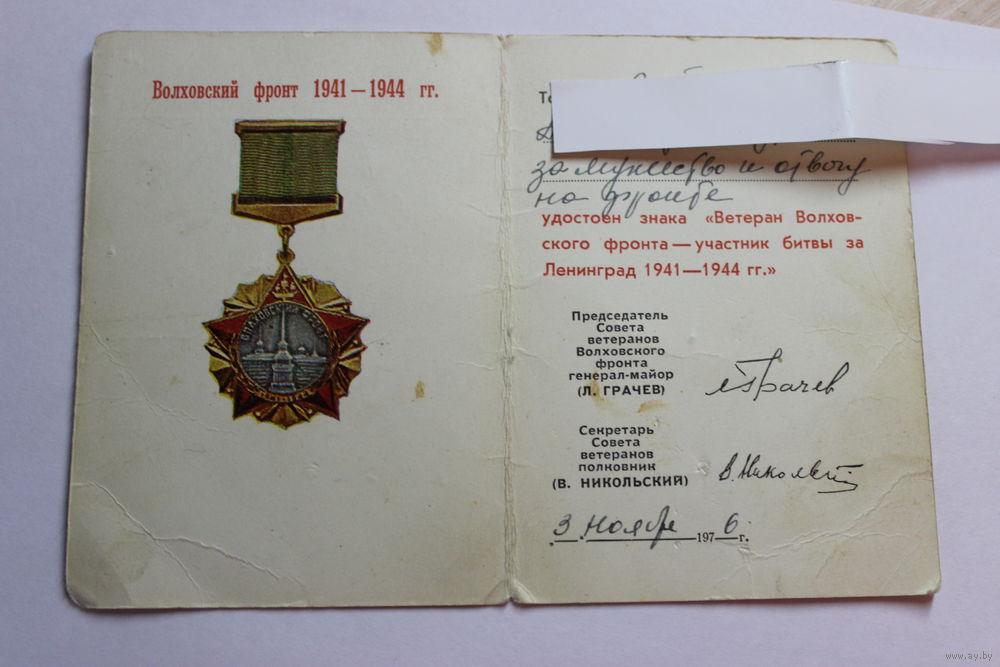 Волховский фронт 1941—1944 гг.
ВОЛХОВСКИЙ ФРОНТ
1941-1944
за мужество и отвагу
на фронте
удостоен знака «Ветеран Волхов-
ского фронта—участник битвы за
Ленинград 1941—1944 гг.»
Председатель
Совета
ветеранов
Волховского
фронта
генерал-майор
(Л. ГРАЧЕВ)
ЛГрачев
Секретарь
Совета
ветеранов
полковник
(В. НИКОЛЬСКИЙ)
В.Никольский
3 ноября 1976 г.
www.ay.by